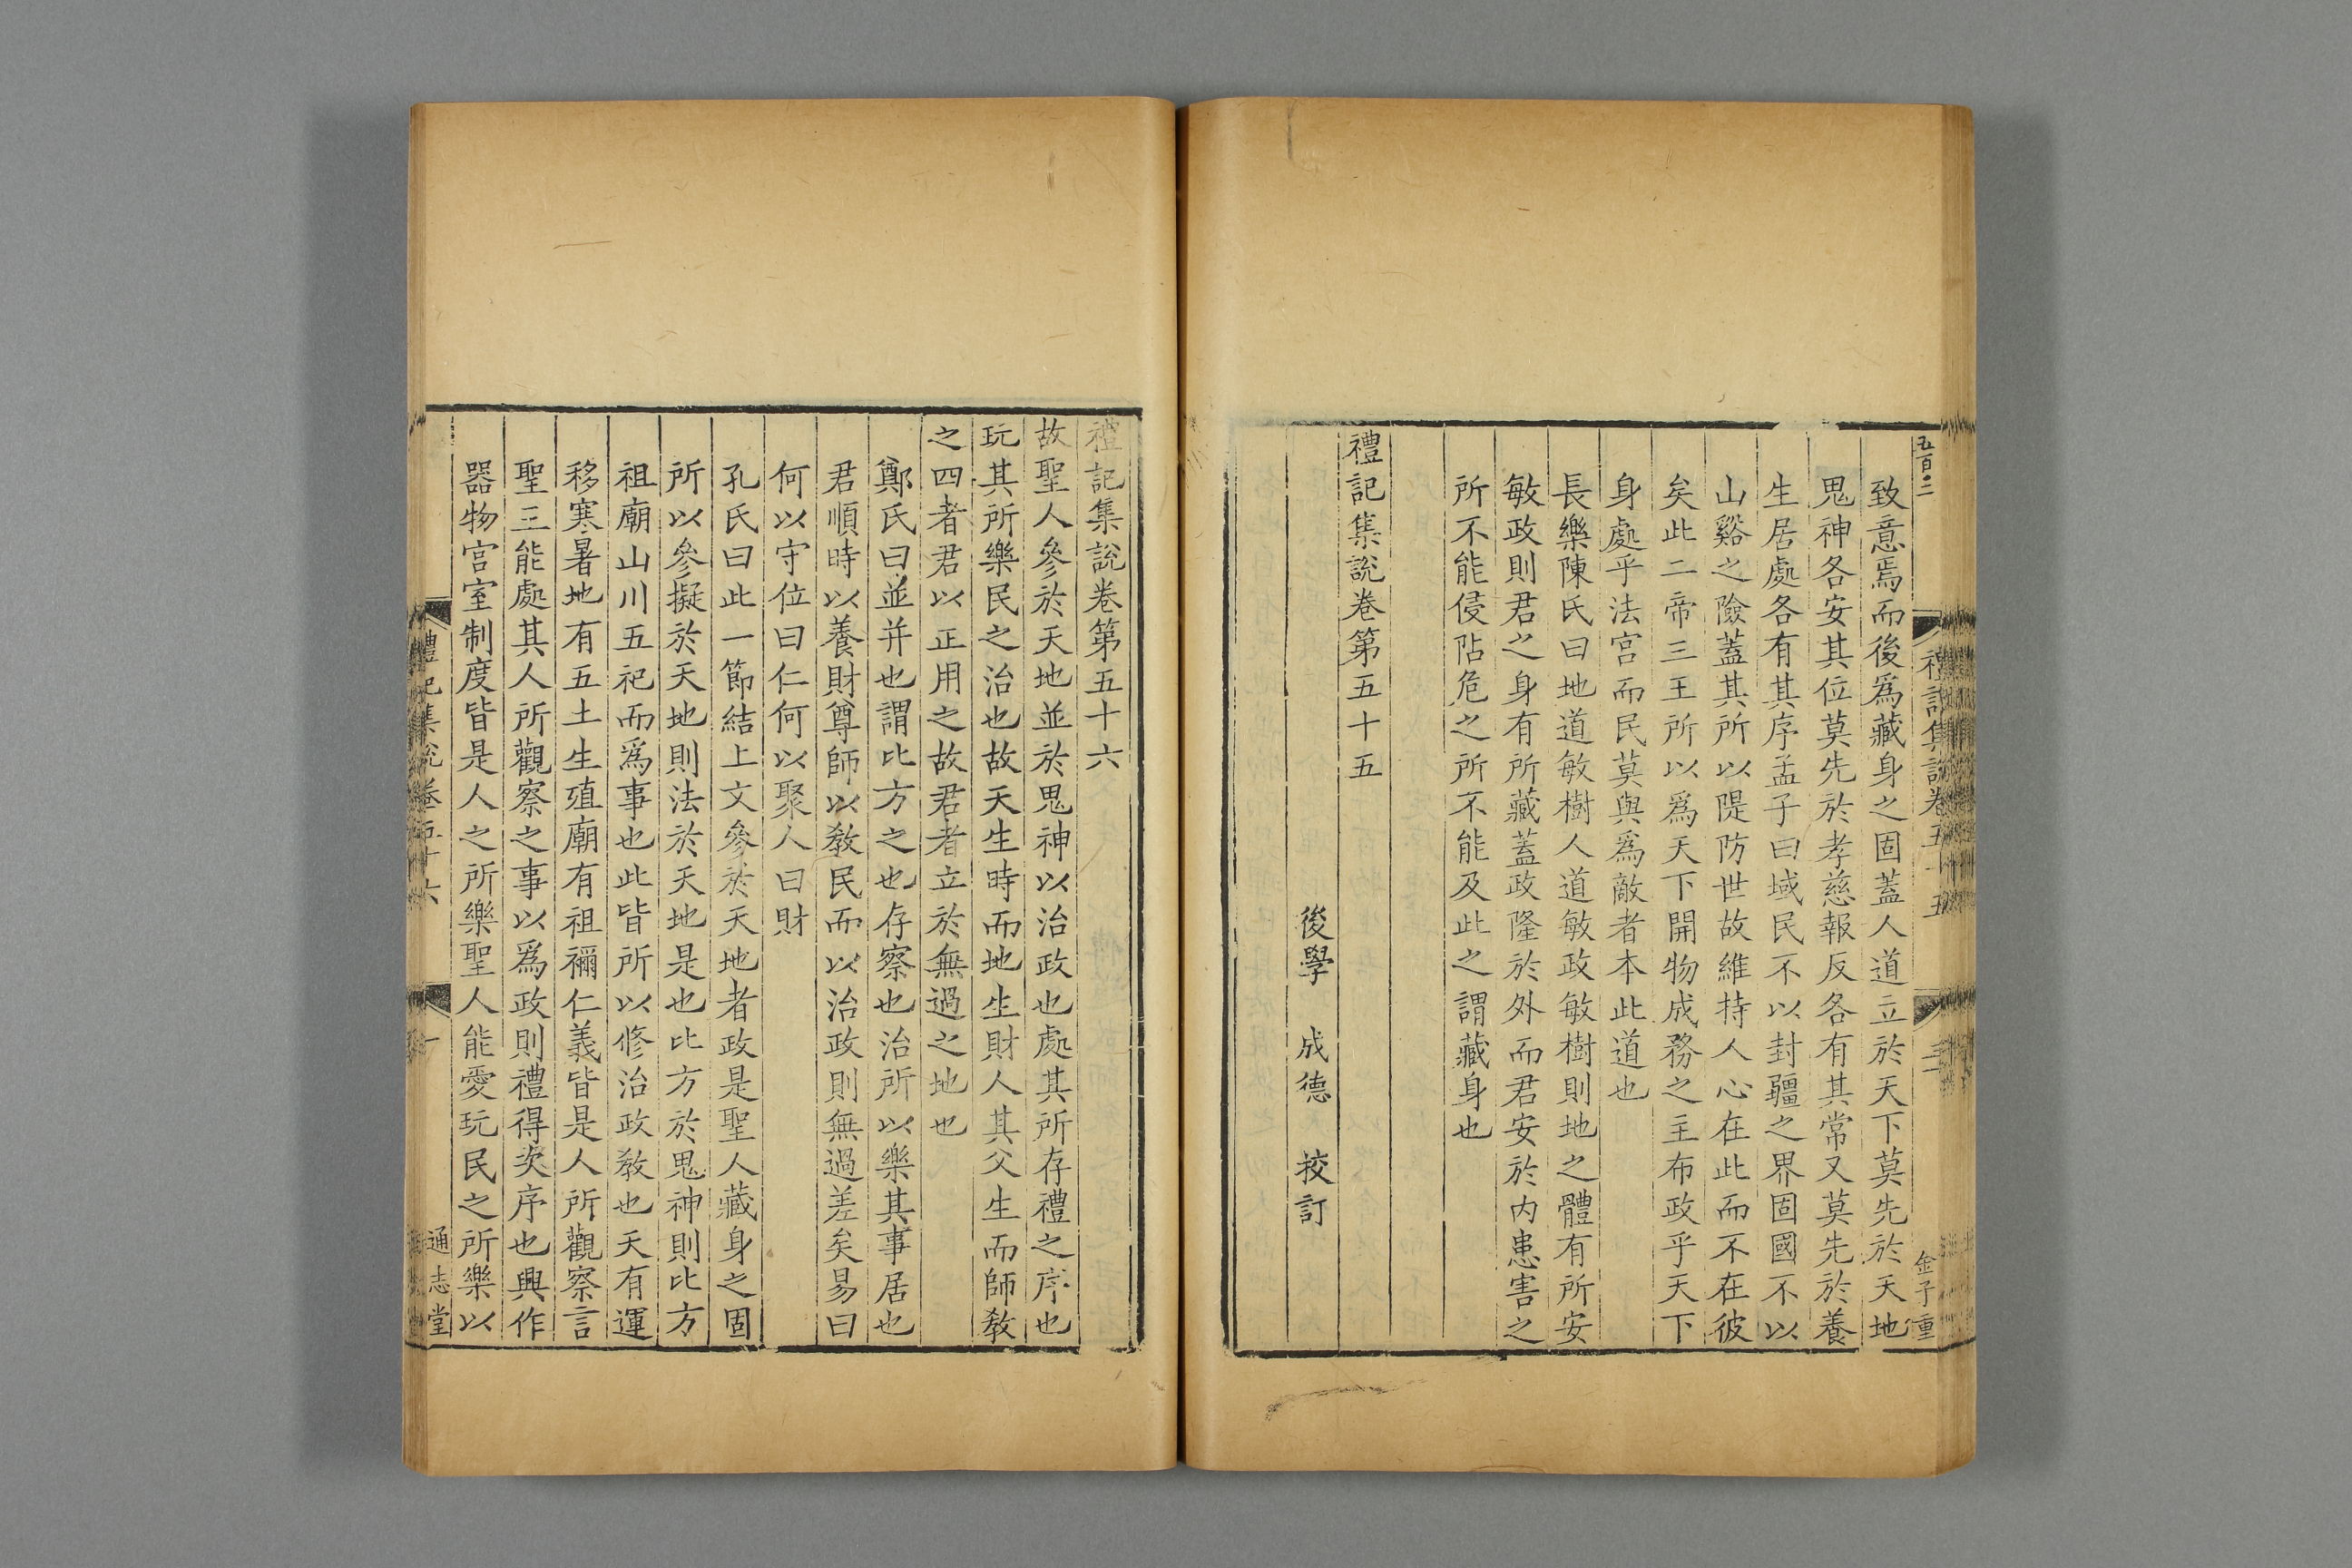 五百·二
禮記集說卷五十五
金子重
致意焉而後爲藏身之固蓋人道立於天下莫先於天地
鬼神各安其位莫先於孝慈報反各有其常又莫先於養
生居處各有其序孟子曰域民不以封疆之界固國不以
山谿之險蓋其所以隄防世故維持人心在此而不在彼
矣此二帝三王所以爲天下開物成務之主布政乎天下
身處乎法宮而民莫與爲敵者本此道也
長樂陳氏曰地道敏樹人道敏政敏樹則地之體有所安
敏政則君之身有所藏蓋政隆於外而君安於内患害之
所不能侵阽危之所不能及此之謂藏身也
禮記集說卷第五十五
後學 成德 挍訂
禮記集說卷第五十六
故聖人參於天地並於鬼神以治政也處其所存禮之序也
玩其所樂民之治也故天生時而地生財人其父生而師教
之四者君以正用之故君者立於無過之地也
鄭氏曰並并也謂比方之也存察也治所以樂其事居也
君順時以養財尊師以教民而以治政則無過差矣易曰
何以守位曰仁何以聚人曰財
孔氏曰此一節結上文參於天地者政是聖人藏身之固
所以參擬於天地則法於天地是也比方於鬼神則比方
祖廟山川五祀而爲事也此皆所以修治政教也天有運
移寒暑地有五土生殖廟有祖禰仁義皆是人所觀察言
聖王能處其人所觀察之事以爲政則禮得次序也興作
器物宮室制度皆是人之所樂聖人能愛玩民之所樂以
禮記集說卷五十六
一
通志堂